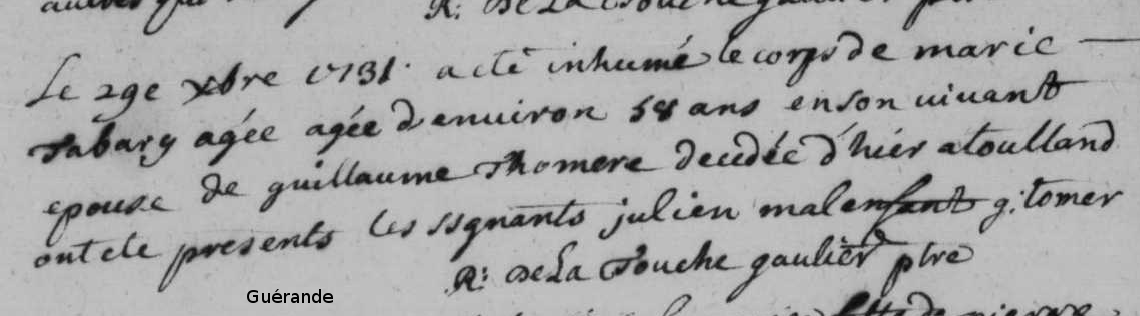 R: De La Touche gaulier
Le 29e xbre 1731. a eté inhumé le corps de marie
Tabary agée agée d'environ 58 ans en son vivant
epouse de guillaume Thomere decedée d'hier a toulland
ont ete presents les ssgnants julien malenfant g: tomer
R: De La Touche gaulier ptre
Guérande